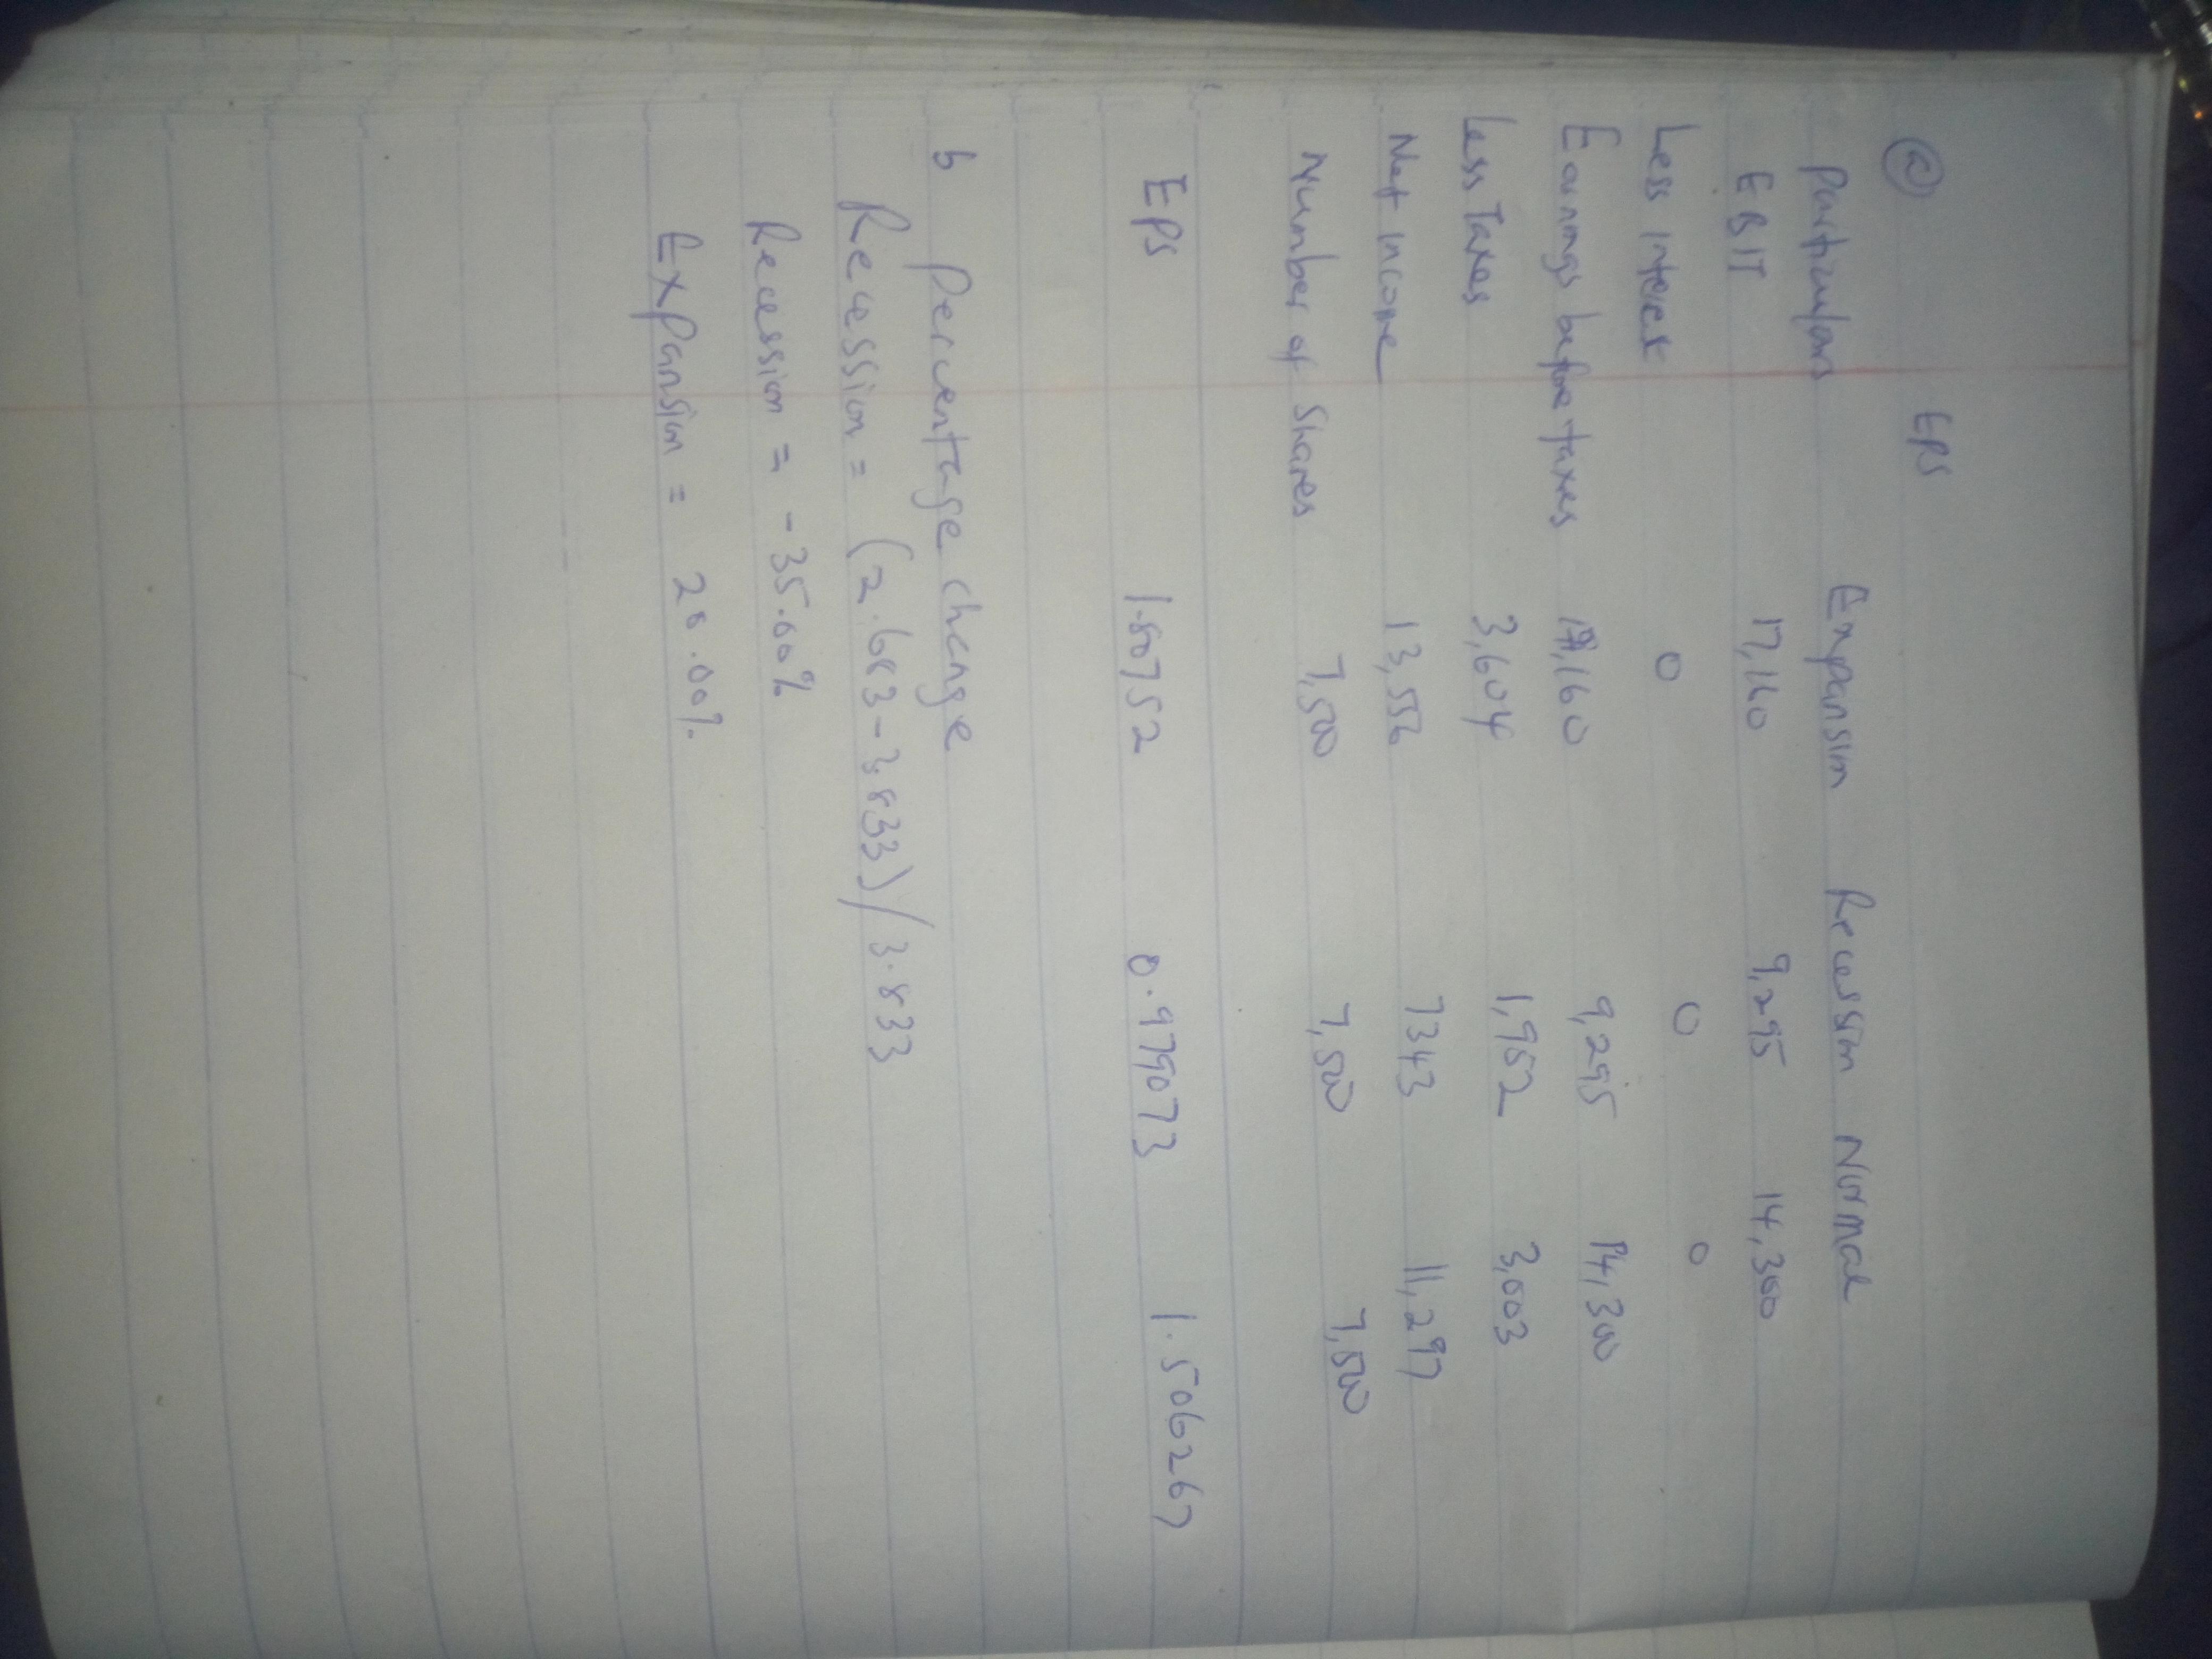 ⓐ EPS
Particulars Expansion Recession Normal
EBIT 17,160 9,295 14,300
Less interest 0 0 0
Earnings before taxes 17,160 9,295 14,300
Less Taxes 3,604 1,952 3,003
Net income 13,556 7343 11,297
Number of Shares 7,500 7,500 7,500
EPS 1.80752 0.979073 1.506267
b Percentage change
Recession = (2.683-3.833)/3.833
Recession = -35.00%
Expansion = 20.00%